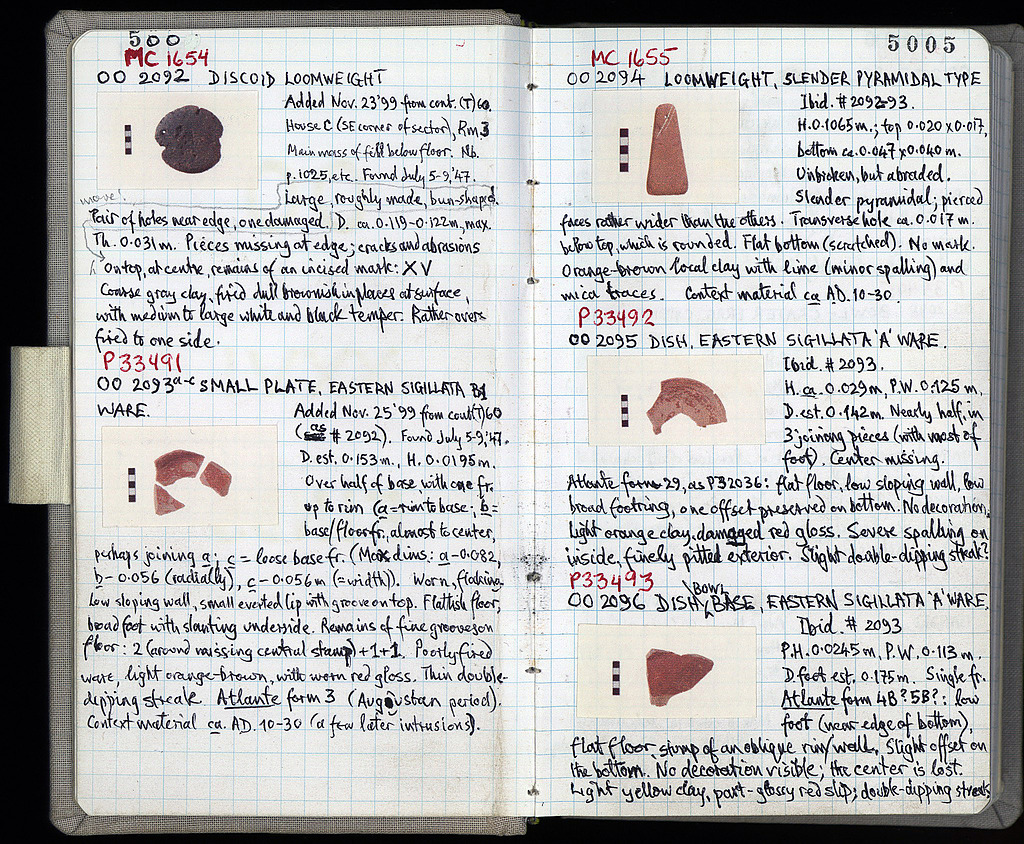 500
MC 1654
OO 2092 DISCOID LOOMWEIGHT
Added Nov. 23'99 from cont. (T) 60.
House C (SE corner of sector), Rm. 3
Main mass of fill below floor. Nb.
p. 1025, etc. Found July 5-9,'47.
move!
Large, roughly made, bun-shaped.
Pair of holes near edge, one damaged. D. ca. 0.119-0.122m, max.
Th. 0.031m. Pieces missing at edge; cracks and abrasions
On top, at centre, remains of an incised mark: XV
Coarse gray clay, fired dull brownish in places at surface,
with medium to large white and black temper. Rather over-
fired to one side.
P33491
OO 2093 a-c SMALL PLATE, EASTERN SIGILLATA B1
WARE.
Added Nov. 25'99 from cont (T) 60
(as # 2092). Found July 5-9,'47.
D. est. 0.153m., H. 0.0195m.
Over half of base with one fr.
up to rim (a = rim to base; b =
base/floor fr., almost to center,
perhaps joining a; c = loose base fr. (Max dims: a-0.082,
b-0.056 (radially), c-0.056m (=width)). Worn, flaking.
Low sloping wall, small everted lip with groove on top. Flattish floor,
broad foot with slanting underside. Remains of fine grooves on
floor: 2 (around missing central stamp) +1+1. Poorly fired
ware, light orange-brown, with worn red gloss. Thin double-
dipping streak. Atlante form 3 (Augustan period).
Context material ca. AD. 10-30 (a few later intrusions).
5005
MC 1655
OO 2094 LOOMWEIGHT, SLENDER PYRAMIDAL TYPE
Ibid. # 2092-93.
H. 0.1065m.; top 0.020 x 0.017,
bottom ca. 0.047 x 0.040m.
Unbroken, but abraded.
Slender pyramidal; pierced
faces rather wider than the others. Transverse hole ca. 0.017m.
below top, which is rounded. Flat bottom (scratched). No mark.
Orange-brown local clay with lime (minor spalling) and
mica traces. Context material ca AD. 10-30.
P33492
OO 2095 DISH, EASTERN SIGILLATA 'A' WARE.
Ibid. # 2093.
H. ca. 0.029m, P.W. 0.125m,
D. est. 0.142m. Nearly half, in
3 joining pieces (with most of
foot). Center missing.
Atlante form 29, as P32036: flat floor, low sloping wall, low
broad footring, one offset preserved on bottom. No decoration.
Light orange clay, damaged red gloss. Severe spalling on
inside, finely pitted exterior. Slight double-dipping streak?
P33493
OO 2096 DISH/BOWL BASE, EASTERN SIGILLATA 'A' WARE.
Ibid. # 2093
P.H. 0.0245m, P.W. 0.113m.
D. foot est. 0.175m. Single fr.
Atlante form 4B? 5B?: low
foot (near edge of bottom),
flat floor, stump of an oblique rim/wall. Slight offset on
the bottom. No decoration visible; the center is lost.
Light yellow clay, part-glossy red slip; double-dipping streak